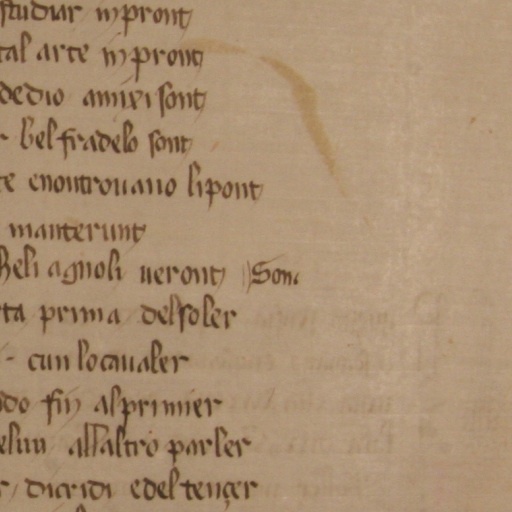 studiar inpront
tal arte inpront
dedio amixi sont
bel fradelo sont
te enontrouauo lipont
manterunt
Beli agnoli ueront Son
ta prima delsoler
cun locaualer
do fin alprimer
elun allaltro parler
dicridi edel tençer